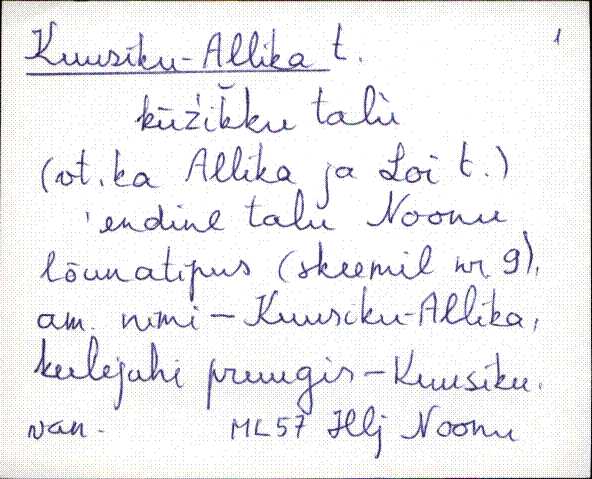 Kuusiku-Allika t. 1
kūžik̆ku talù
(vt. ka Allika ja Loi t.)
'endine talu Noonu
lõunatipus (skeemil nr 9),
am. nimi – Kuusiku-Allika,
keelejuhi pruugis – Kuusiku.
van. ML57 Hlj Noonu